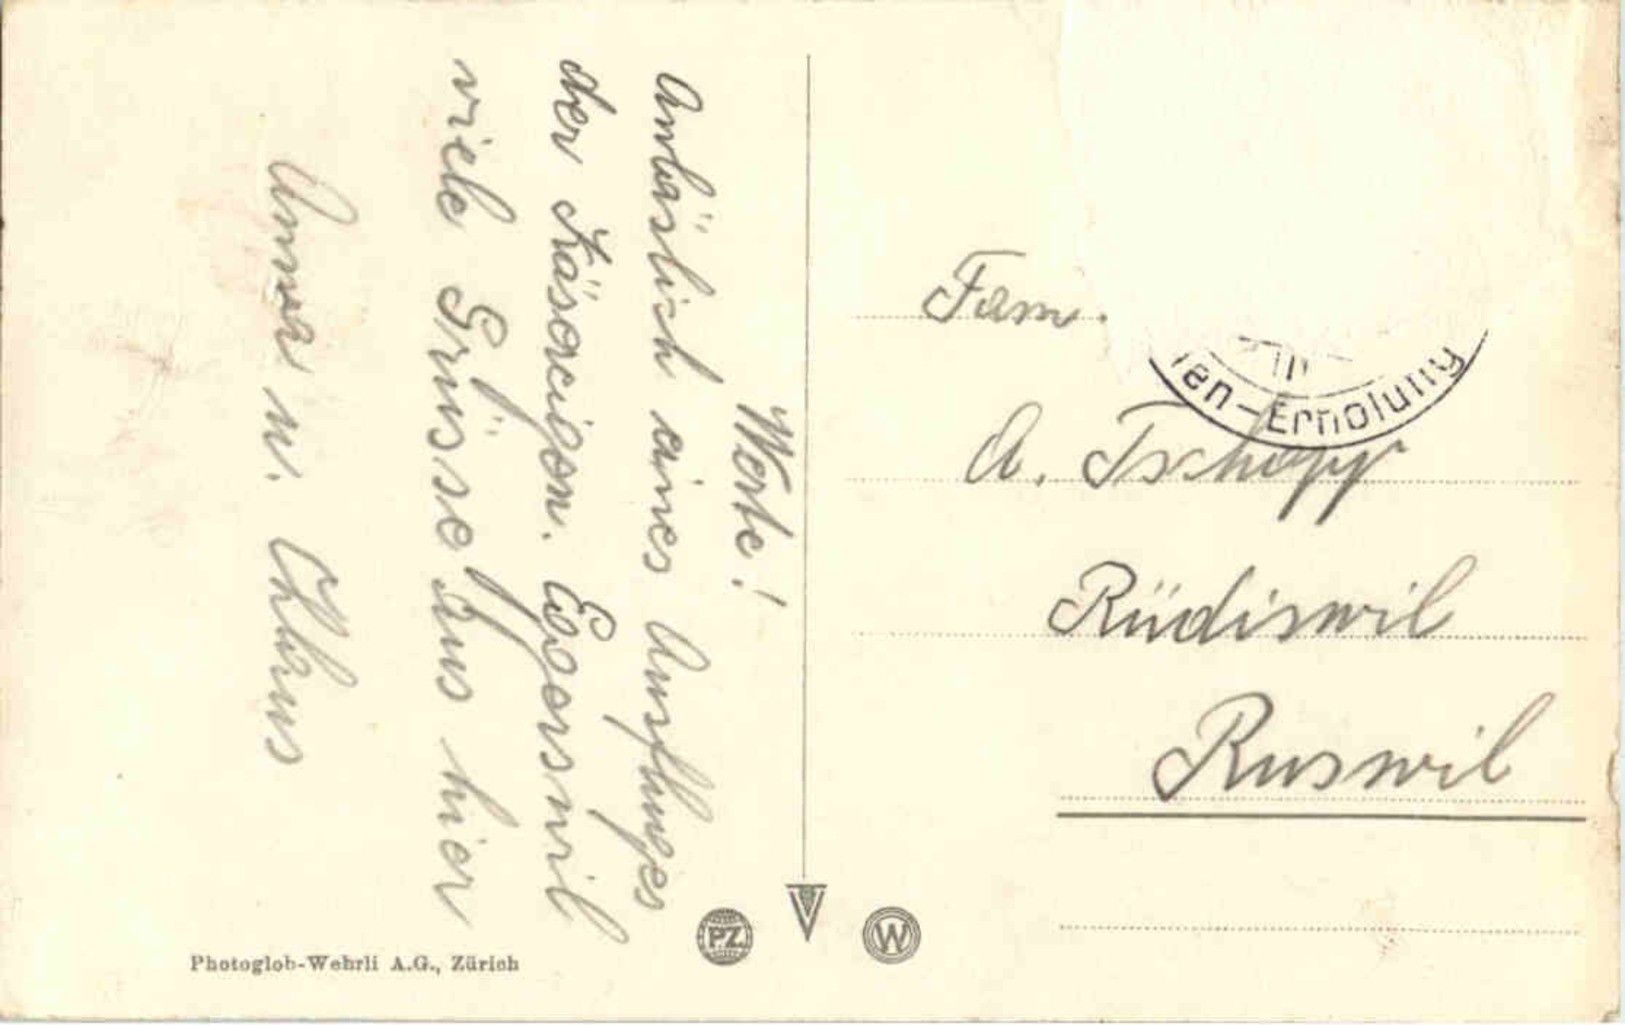 Werte!
Anläslich eines Ausfluges
der Käsereigen. Eggerswil
viele Grüsse aus hier
Anna u. Klaus
Fam.
A. Tschopp
Rüdiswil
Ruswil
ien-Erholung
PZ
W
Photoglob-Wehrli A.G., Zürich